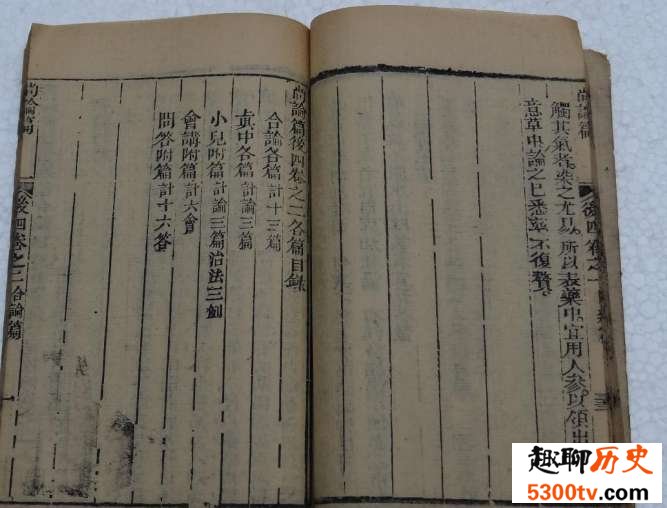 尚論篇
後四卷之一
觸其氣者染之尤易所以表藥中宜用人參以領出
意草中論之已悉茲不復贅
尚論篇後四卷之二各篇目錄
合論各篇計十三篇
真中各篇計論三篇
小兒附篇計論三篇治法三則
會講附篇計六會
問答附篇計十六答
尚論篇
後四卷之二合論篇
一
趣聊历史
5300tv.com